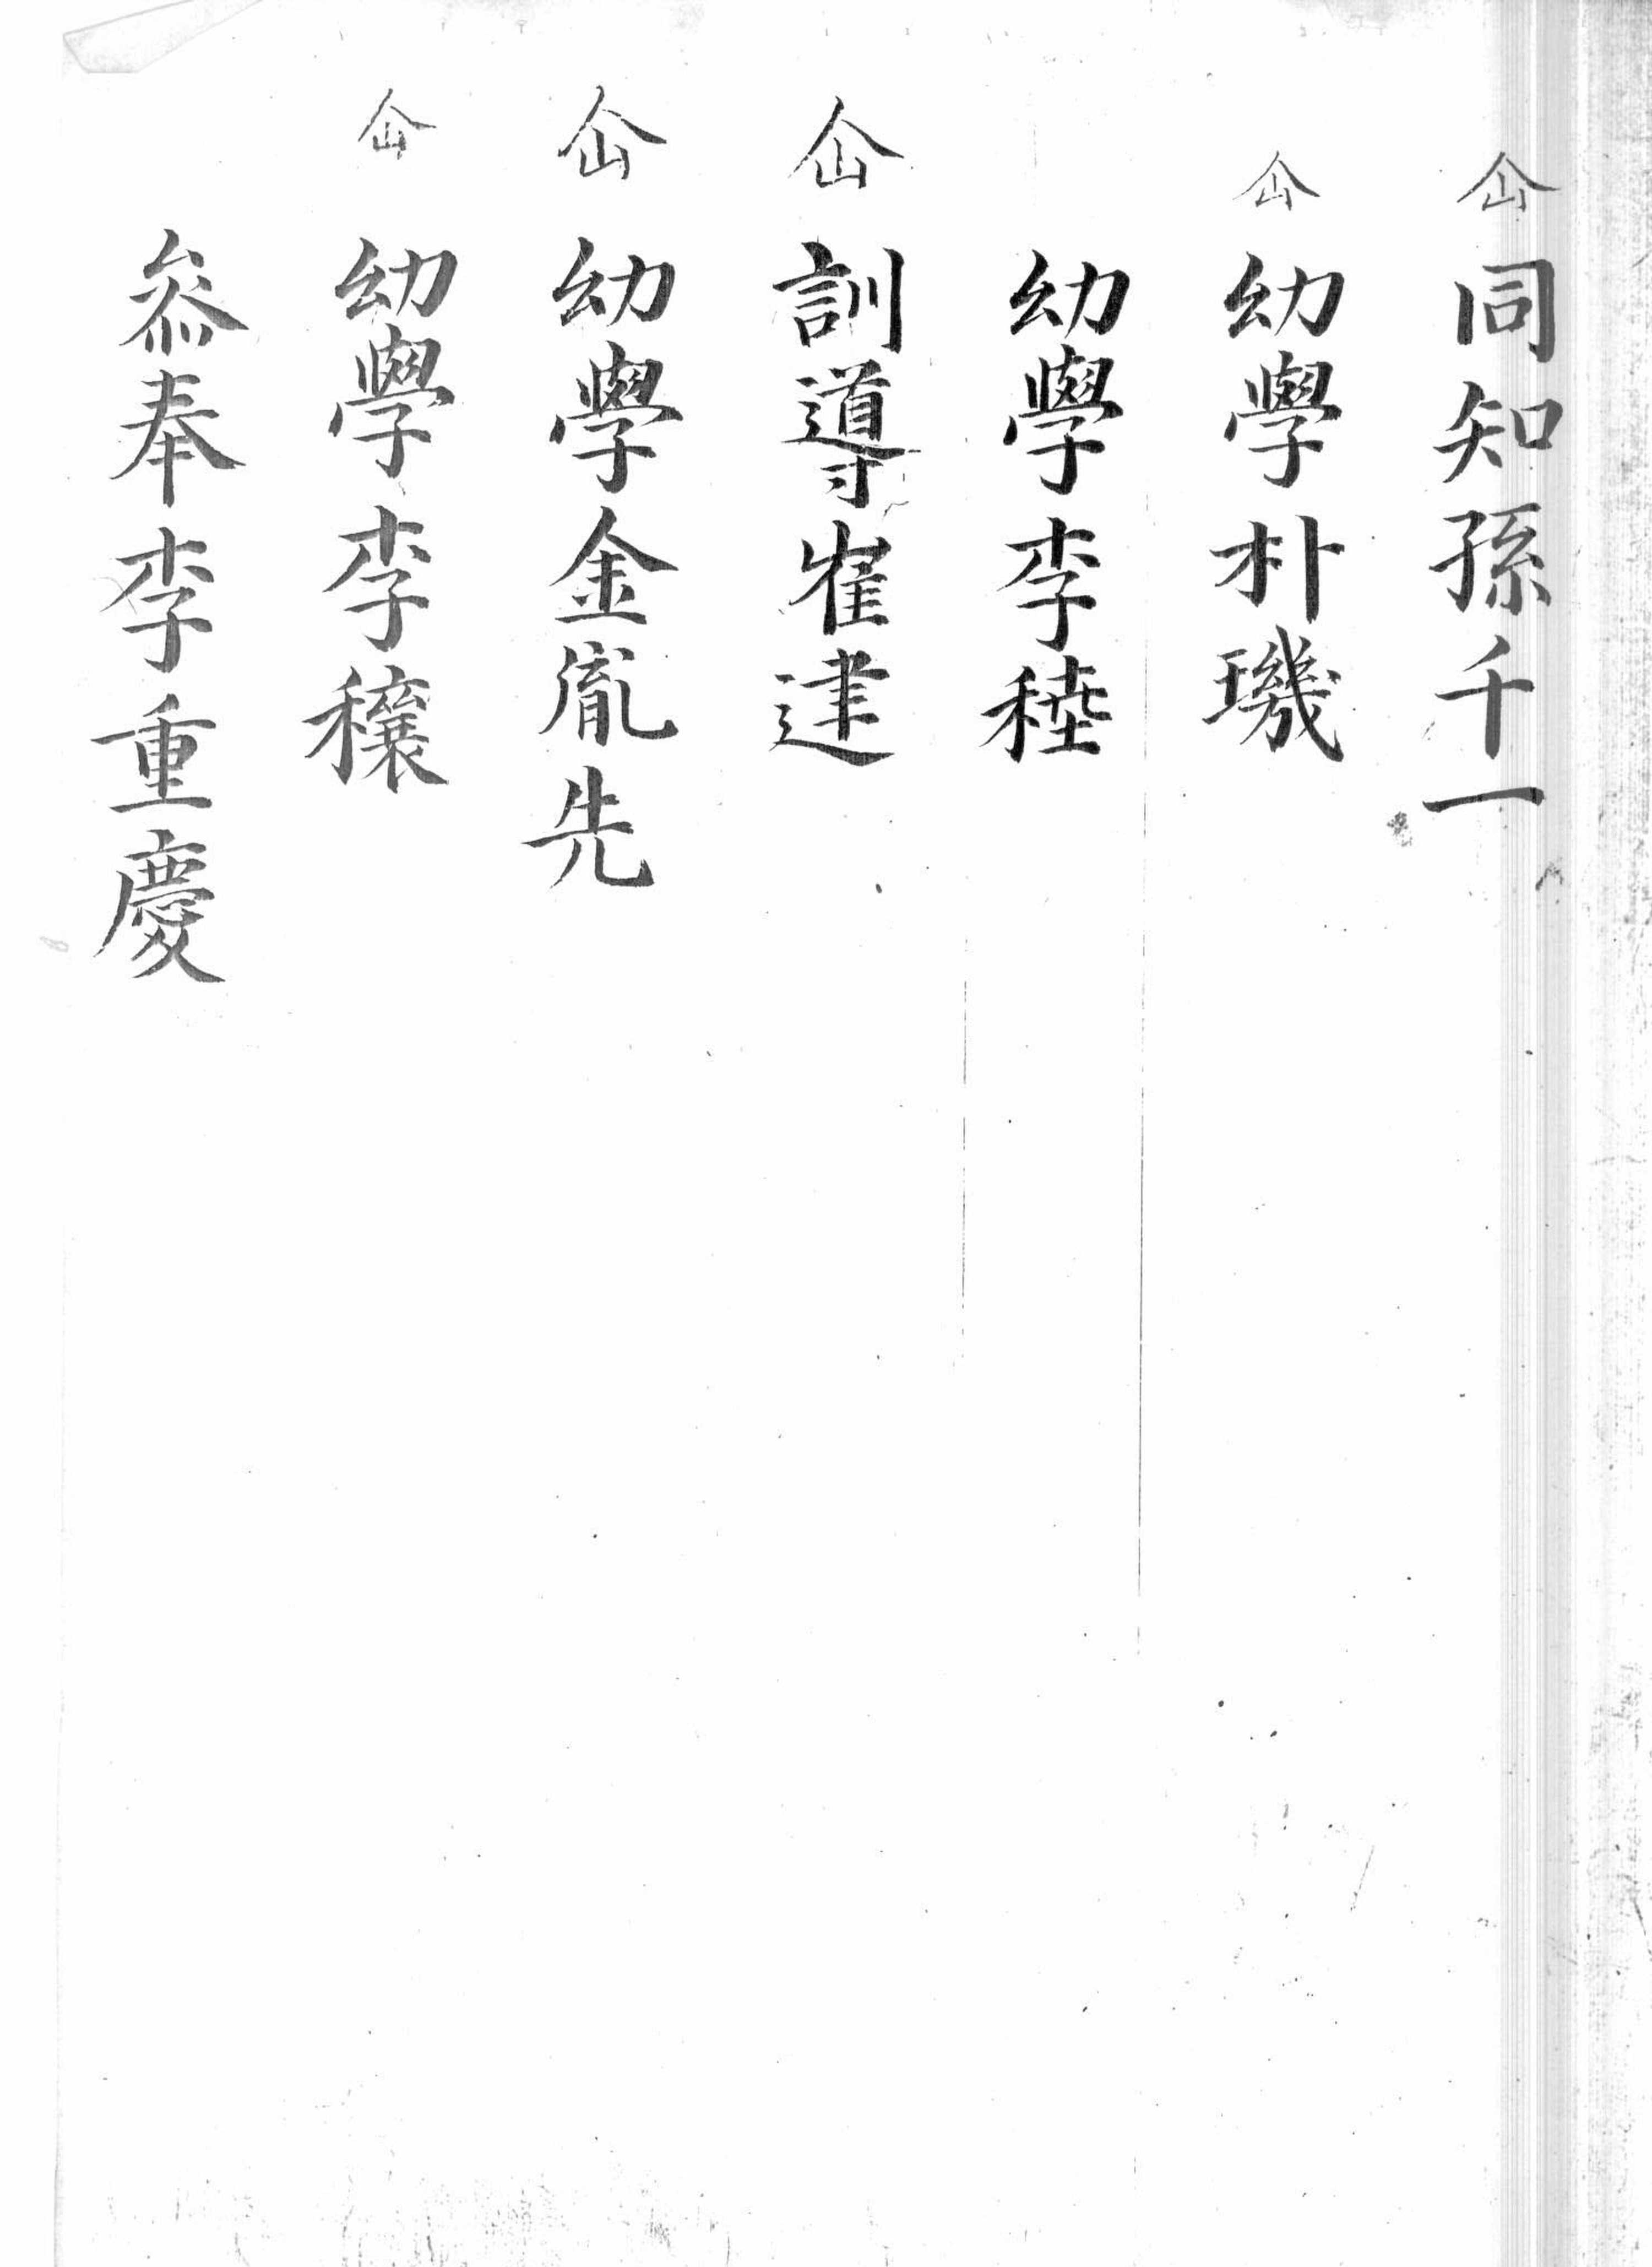 仚同知孫千一
仚幼學朴璣
幼學李稑
仚訓導崔建
仚幼學金胤先
仚幼學李穰
叅奉李重慶